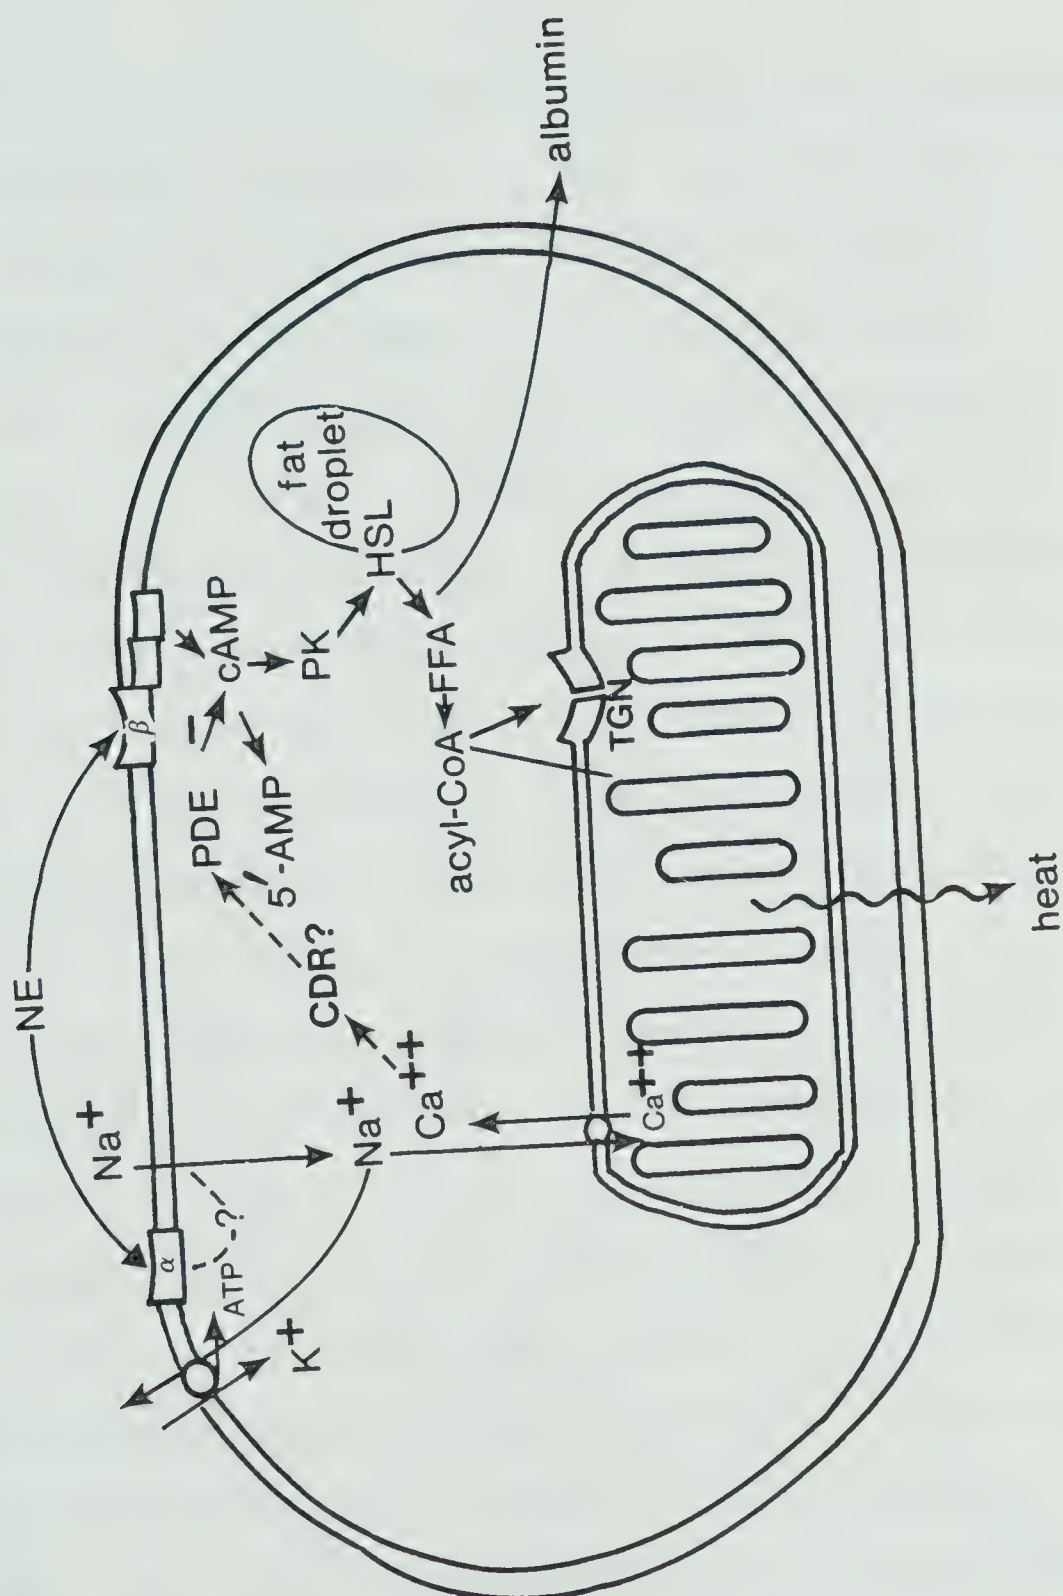 NE
Na⁺
α
β
ATP
-?
K⁺
Na⁺
Ca⁺⁺
CDR?
PDE
–
5'-AMP
cAMP
PK
HSL
fat
droplet
FFA
acyl-CoA
albumin
TGN
Ca⁺⁺
heat